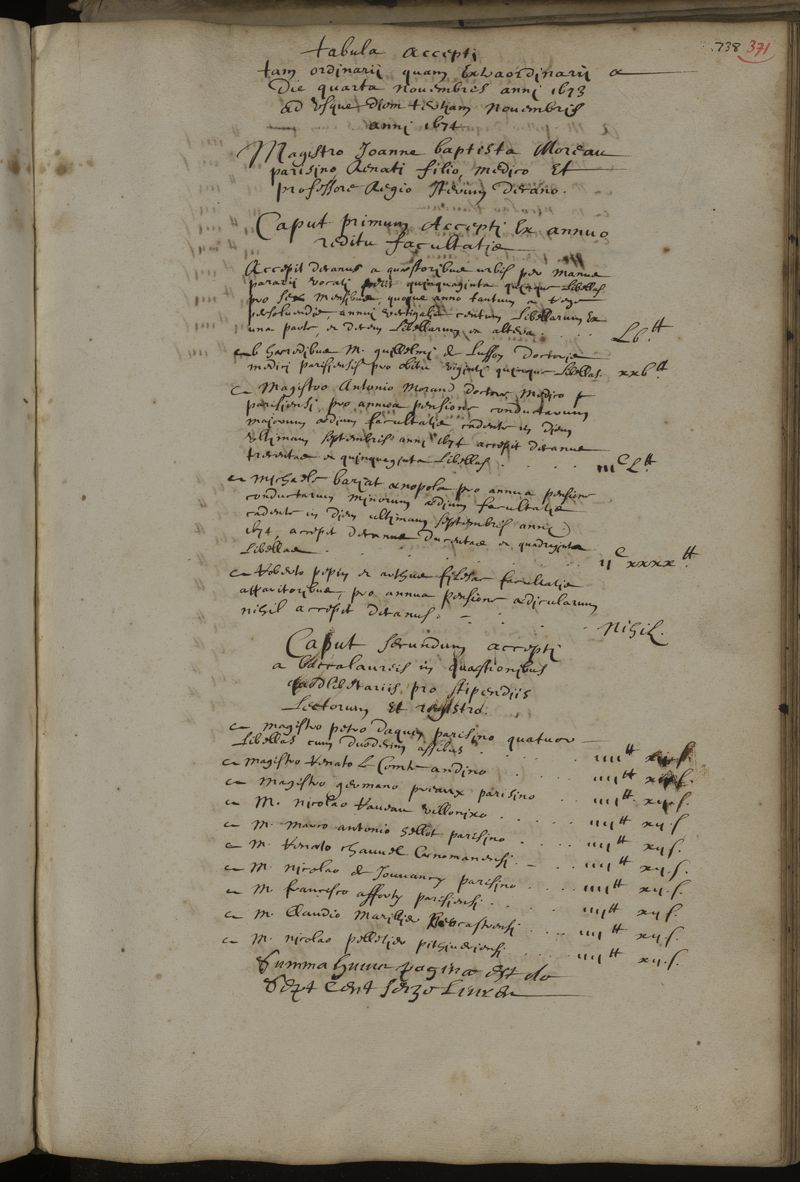 738 371
Tabula Accepti
tam ordinarii quam Extraordinarii a
Die quarta novembris anni 1673
ad usque Diem tertiam Novembris
anni 1674
Magistro Joanne baptista Moreau
parisino, Renati filio, medico Et
professore Regio Iterum Decano.
Caput primum Accepti Ex annuo
reditu facultatis
Accepit decanus a quaestoribus urbis per manus
pararii vocati quinquaginta quinque Libellas
pro sex mensibus, quoque anno tantum a rege
persolvendis, annui vectigalis centum Libellarum Ex
una parte, et decem Libellarum ex altera . . . Lb tt
ab haeredibus M. guillelmi de Lusson Doctoris
medici parisiensis pro obitu viginti quinque Libellas. xxb tt
a Magistro Antonio Morand doctore Medico
parisiensi, pro annua pensione conductarum
majorum aedium facultatis cadente in diem
ultimam septembris anni 1674 accepit decanus
trecentas et quinquaginta Libellas . . . . iii c L tt
a michaele bariat oenopola pro annua pensione
conductarum minorum aedium facultatis
cadente in diem ultimam septembris anni
1674, accepit decanus ducentas et quadraginta
Libellas . . . . . . ii c xxxx tt
a Roberto pepin et arthus filesac facultatis
apparitoribus, pro annua pensione aedicularum
nihil accepit decanus. . . . . Nihil.
Caput secundum accepti
a baccalaureis in quaestionibus
quodlibetariis, pro stipendiis
Lectorum Et registro.
a magistro petro daquin parisino quatuor
Libellas cum duodecim assibus . . . . iiii tt xii s.
a magistro Renato Le Comte andino . . . iiii tt xii s.
a Magistro germano preaux parisino . . iiii tt xii s.
a M. nicolao Raveau . . . . iiii tt xii s
a M. marco antonio hellot parisino . . . iiii tt xii s.
a M. Renato chauvel Cenomanensi . - . . iiii tt xii s.
a M. nicolao de Jouvancy parisino . . . . iiii tt xii s.
a M. francisco afforty parisiensi . . . iiii tt xii s.
a M. Claudio Marilier . . . iiii tt xii s.
a M. nicolao pelletier pithueriensi . . . iiii tt xii s.
Summa huius paginae est de
Sept Cent seize Livres